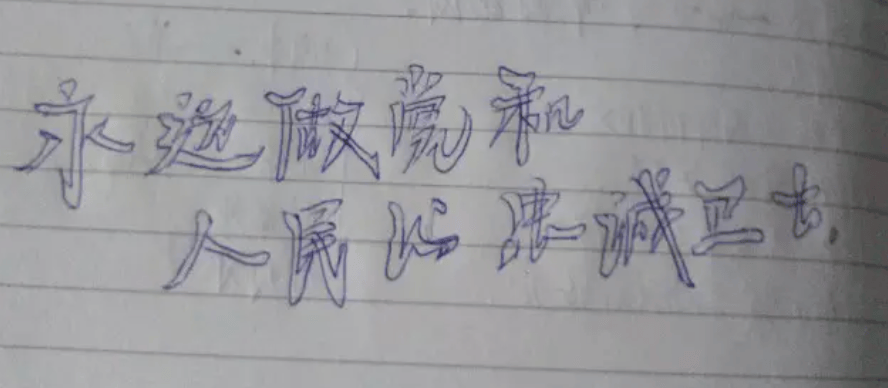 永远做党和
人民的忠诚卫士.